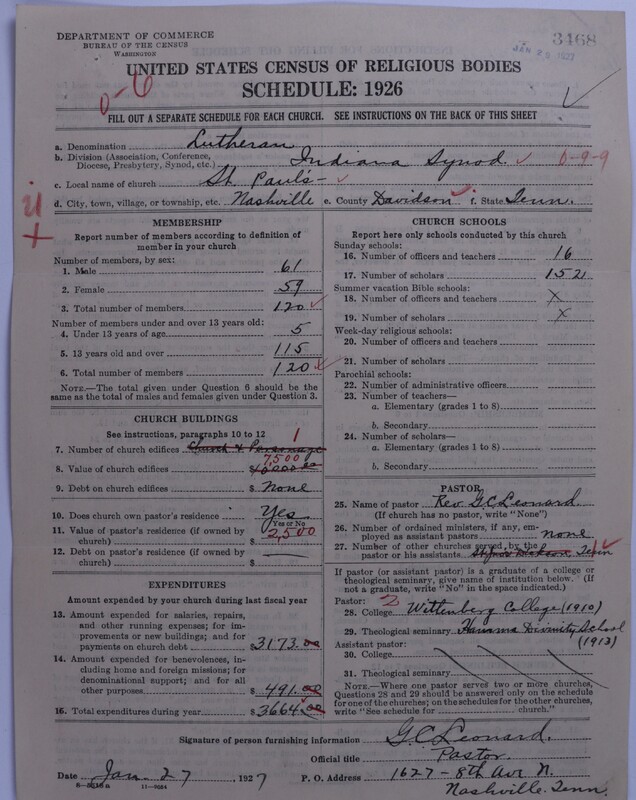 DEPARTMENT OF COMMERCE
BUREAU OF THE CENSUS
WASHINGTON
3468
JAN 29 1927
UNITED STATES CENSUS OF RELIGIOUS BODIES
SCHEDULE: 1926
0-6
FILL OUT A SEPARATE SCHEDULE FOR EACH CHURCH. SEE INSTRUCTIONS ON THE BACK OF THIS SHEET
a. Denomination Lutheran
b. Division (Association, Conference, Diocese, Presbytery, Synod, etc.) Indiana Synod. 0-9-9
c. Local name of church St. Paul's
d. City, town, village, or township, etc. Nashville e. County Davidson f. State Tenn.
MEMBERSHIP
Report number of members according to definition of
member in your church
Number of members, by sex:
1. Male 61
2. Female 59
3. Total number of members 120
Number of members under and over 13 years old:
4. Under 13 years of age 5
5. 13 years old and over 115
6. Total number of members 120
NOTE.—The total given under Question 6 should be
same as the total of males and females given under Question 3.
CHURCH BUILDINGS
See instructions, paragraphs 10 to 12
7. Number of church edifices Church & Parsonage 1
8. Value of church edifices $ 7,500
9. Debt on church edifices $ None
10. Does church own pastor's residence Yes
Yes or No
11. Value of pastor's residence (if owned by
church) $ 2,500
12. Debt on pastor's residence (if owned by
church) $
EXPENDITURES
Amount expended by your church during last fiscal year
13. Amount expended for salaries, repairs,
and other running expenses; for im-
provements or new buildings; and for
payments on church debt $ 3173.00
14. Amount expended for benevolences, in-
cluding home and foreign missions; for
denominational support; and for all
other purposes $ 491.00
15. Total expenditures during year $ 3664.00
CHURCH SCHOOLS
Report here only schools conducted by this church
Sunday schools:
16. Number of officers and teachers 16
17. Number of scholars 152
Summer vacation Bible schools:
18. Number of officers and teachers X
19. Number of scholars X
Week-day religious schools:
20. Number of officers and teachers
21. Number of scholars
Parochial schools:
22. Number of administrative officers
23. Number of teachers—
a. Elementary (grades 1 to 8)
b. Secondary
24. Number of scholars—
a. Elementary (grades 1 to 8)
b. Secondary
PASTOR
25. Name of pastor Rev. G.C. Leonard.
(If church has no pastor, write "None")
26. Number of ordained ministers, if any, em-
ployed as assistant pastors none
27. Number of other churches served by the
pastor or his assistants Tenn 1
If pastor (or assistant pastor) is a graduate of a college or
theological seminary, give name of institution below. (If
not a graduate, write "No" in the space indicated.)
Pastor: 2
28. College Wittenberg College (1910)
29. Theological seminary Hamma Divinity School
(1913)
Assistant pastor:
30. College
31. Theological seminary
NOTE.—Where one pastor serves two or more churches,
Questions 28 and 29 should be answered only on the schedule
for one of the churches; on the schedules for the other churches,
write "See schedule for church."
Signature of person furnishing information G.C. Leonard.
Official title Pastor.
Date Jan. 27, 1927 P. O. Address 1627 - 8th Ave N.
Nashville Tenn.
11-9084